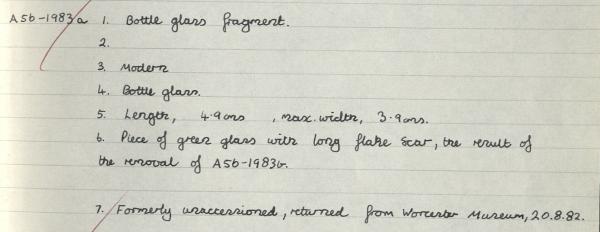 A56-1983/a 1. Bottle glass fragment.
2.
3. Modern
4. Bottle glass.
5. Length, 4.9cms , max. width, 3.9cms.
6. Piece of green glass with long flake scar, the result of
the removal of A56-1983b.
7. Formerly unaccessioned, returned from Worcester Museum, 20.8.82.